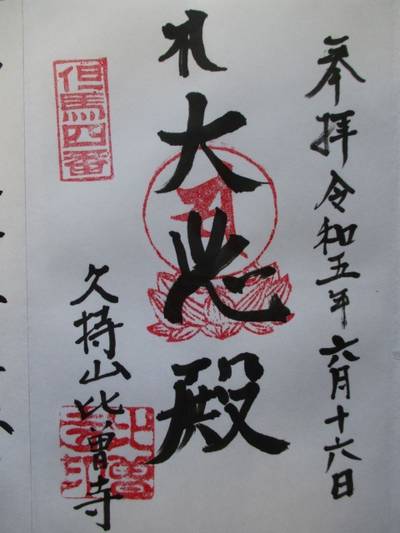 奉拝 令和五年六月十六日
大悲殿
但馬四番
久持山比曽寺